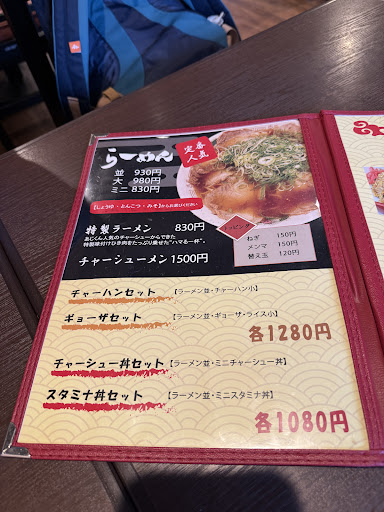 らーめん
定番
人気
並 930円
大 980円
ミニ 830円
【しょうゆ・とんこつ・みそ】からお選びください
特製ラーメン 830円
あじくん人気のチャーシューからできた
特製味付けひき肉をたっぷり乗せた“ハマる一杯”。
チャーシューメン 1500円
トッピング
ねぎ 150円
メンマ 150円
替え玉 120円
チャーハンセット 【ラーメン並・チャーハン小】
ギョーザセット 【ラーメン並・ギョーザ・ライス小】
各1280円
チャーシュー丼セット 【ラーメン並・ミニチャーシュー丼】
スタミナ丼セット 【ラーメン並・ミニスタミナ丼】
各1080円